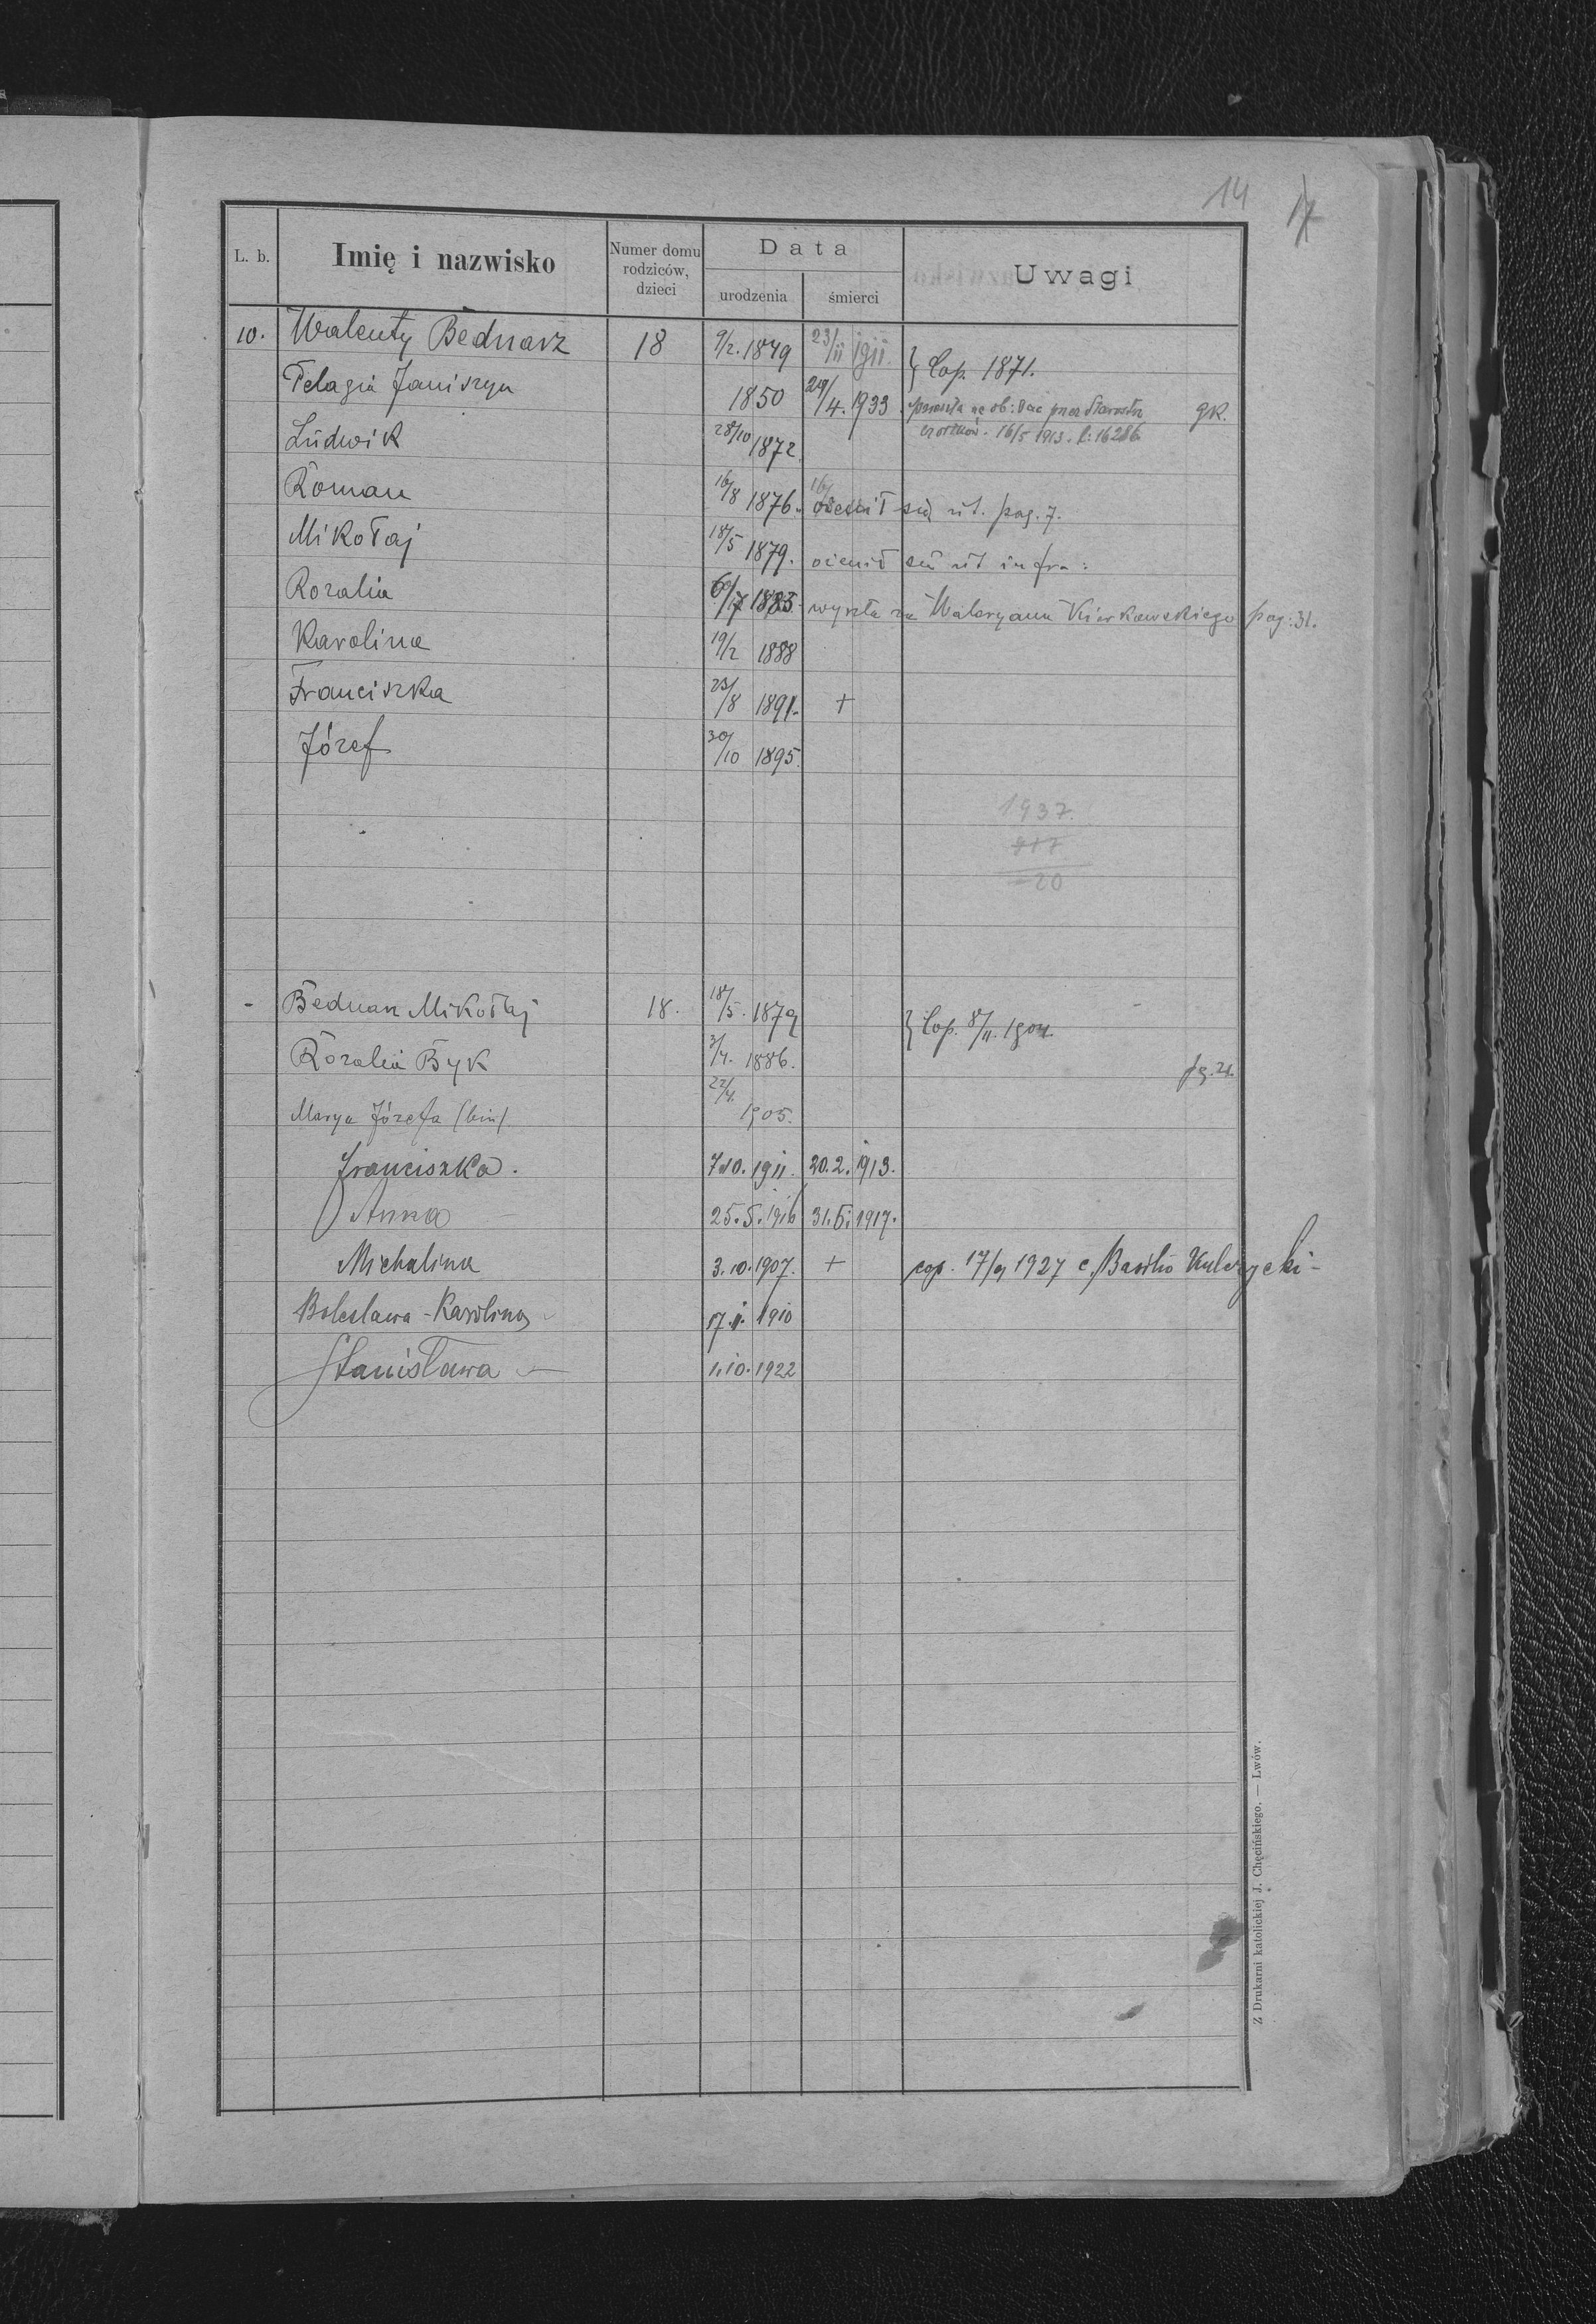 14 17
L. b. Imię i nazwisko Numer domu rodziców, dzieci Data urodzenia śmierci Uwagi
10. Walenty Bednarz 18 9/2. 1849 23/11 1911.
} Cop. 1871.
Pelagia Janiszyn 1850 29/4. 1933 przeszła na ob: przez Starostw. gk.
Ludwik 28/10 1872. 16/5 1913. l: 16286
Roman 16/8 1876. 16/ ożenił się ut. pag. 7.
Mikołaj 18/5 1879. ożenił się ut infra:
Rozalia 6/7 1883. wyszła za Waleryana pag: 31.
Karolina 19/2 1888
Franciszka 23/8 1891. +
Józef 30/10 1895.
1937.
917
20
- Bednarz Mikołaj 18. 18/5. 1879
} Cop. 8/11. 1904.
Rozalia Byk 3/4. 1886. pg. 21.
Marya Józefa (bin). 22/4. 1905.
Franciszka. 7.10. 1911. 20. 2. 1913.
Anna 25. 5. 1916 31. 5. 1917.
Michalina 3. 10. 1907. + cop. 17/9 1927 c. Basilio Kulczycki -
Bolesława - Karolina 17. 11. 1910
Stanisława - 1. 10. 1922
Z Drukarni katolickiej J. Chęcińskiego. — Lwów.